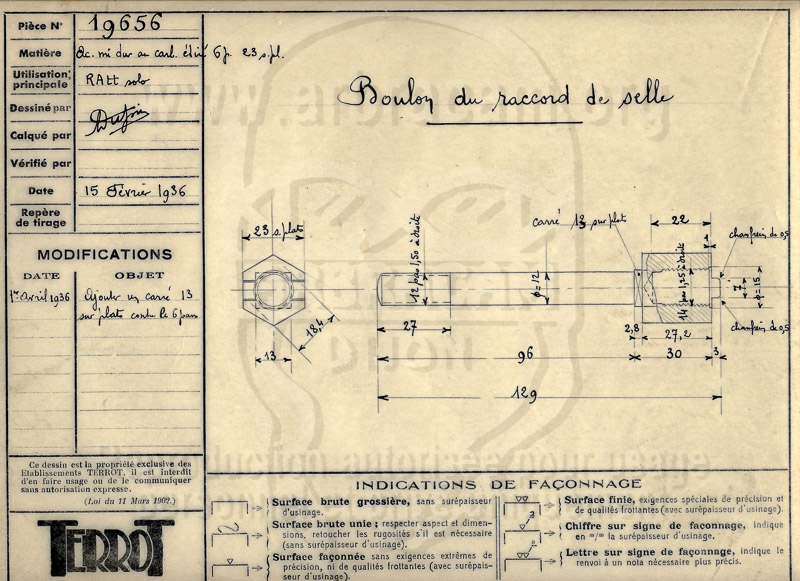 Pièce N° 19656
Matière Ac. mi dur au carb. étiré 6 p. 23 s. pl.
Utilisation principale RAtt solo
Dessiné par
Calqué par
Vérifié par
Date 15 Février 1936
Repère de tirage
MODIFICATIONS
DATE OBJET
1er Avril 1936 Ajouter un carré 13
sur plats contre le 6 pans
Ce dessin est la propriété exclusive des
Etablissements TERROT, il est interdit
d'en faire usage ou de le communiquer
sans autorisation expresse.
(Loi du 11 Mars 1902.)
TERROT
Boulon du raccord de selle
23 s. plat
18,4
13
12 par 1,50 à droite
ϕ=12
27
96
129
carré 13 sur plat
22
1
chanfrein de 0,5
14 par 1,25 à droite
7
ϕ=15
chanfrein de 0,5
2,8
27,2
30
3
INDICATIONS DE FAÇONNAGE
Surface brute grossière, sans surépaisseur
d'usinage.
Surface brute unie ; respecter aspect et dimen-
sions, retoucher les rugosités s'il est nécessaire
(sans surépaisseur d'usinage).
Surface façonnée sans exigences extrêmes de
précision, ni de qualités frottantes (avec surépais-
seur d'usinage).
Surface finie, exigences spéciales de précision et
de qualités frottantes (avec surépaisseur d'usinage).
Chiffre sur signe de faconnage, indique
en m/m la surépaisseur d'usinage.
Lettre sur signe de façonnage, indique le
renvoi à un nota nécessaire plus précis.
www.
.org
reproduction autorisée pour usage